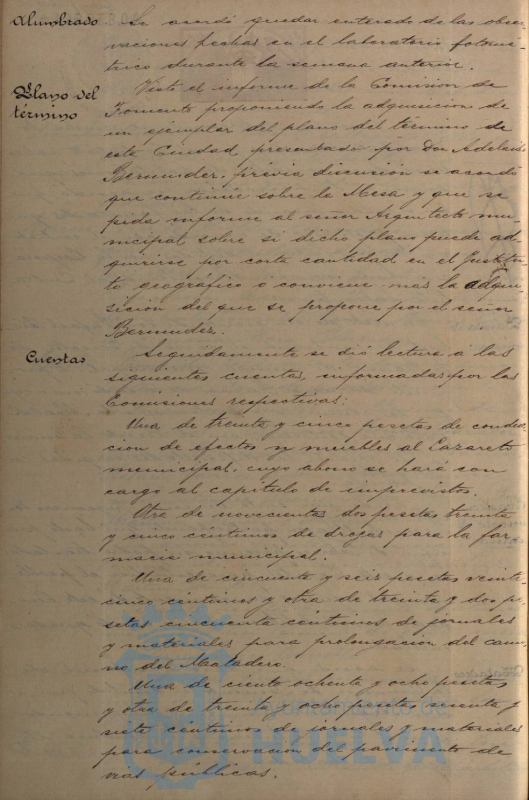 Alumbrado
Se acordó quedar enterado de las obser-
vaciones hechas en el laboratorio fotomé-
trico durante la semana anterior.
Plano del
término
Visto el informe de la Comision de
Fomento proponiendo la adquisicion de
un ejemplar del plano del término de
esta Ciudad, presentado por Don Adelaido
Bermudez, prévia discusión se acordó
que continúe sobre la Mesa y que se
pida informe al señor Arquitecto mu-
nicipal sobre si dicho plano puede ad-
quirirse por corta cantidad en el Institu-
to geográfico ó conviene más la adqui-
sición del que se propone por el señor
Bermudez.
Cuentas
Seguidamente se dió lectura á las
siguientes cuentas, informadas por las
Comisiones respectivas:
Una de treinta y cinco pesetas de conduc-
cion de efectos y muebles al Lazareto
municipal, cuyo abono se hará con
cargo al capítulo de imprevistos.
Otra de novecientas dos pesetas treinta
y cinco céntimos de drogas para la far-
macia municipal.
Una de cincuenta y seis pesetas veinte
cinco céntimos y otra de treinta y dos pe-
setas cincuenta céntimos de jornales
y materiales para prolongacion del cami-
no del Matadero.
Una de ciento ochenta y ocho pesetas
y otra de treinta y ocho pesetas sesenta y
siete céntimos de jornales y materiales
para conservacion del pavimento de
vias públicas.
HUELVA